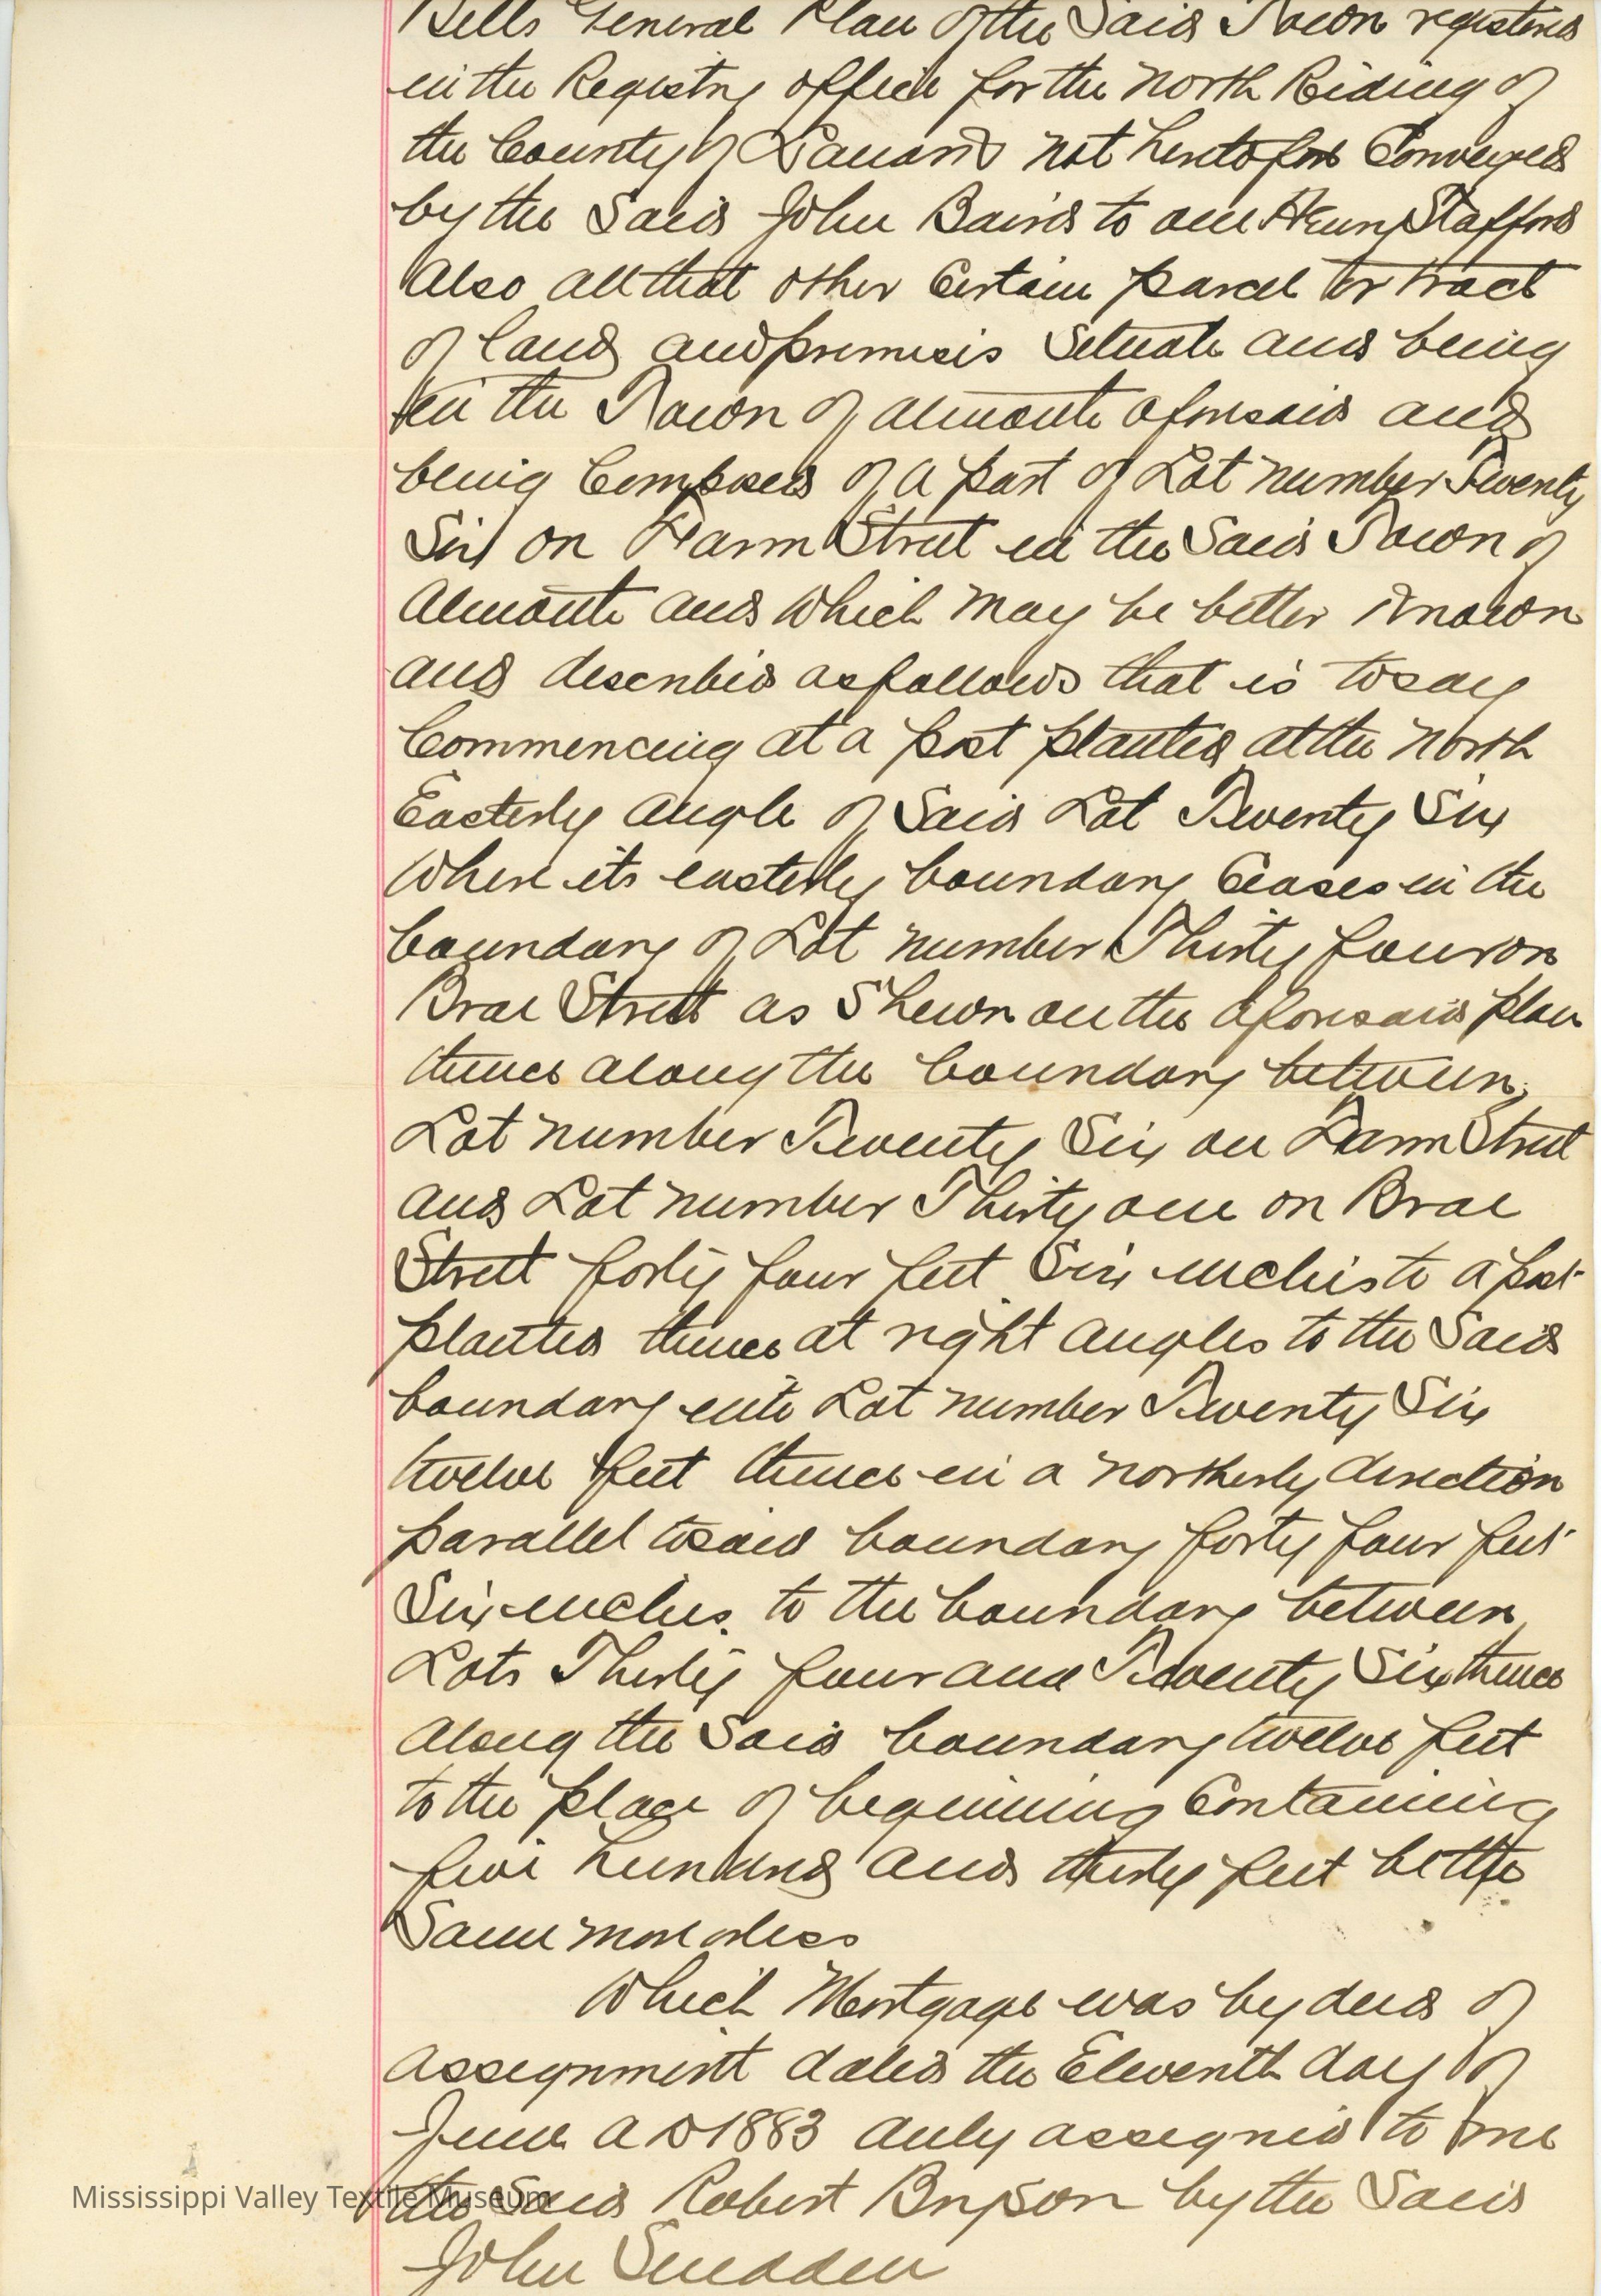 Bells General Plan of the Said Town registered
in the Registry office for the North Riding of
the County of Lanark not heretofore Conveyed
by the Said John Baird to one Henry Stafford
Also all that other Certain parcel or tract
of land and premises Situate and being
in the Town of Almonte aforesaid and
being Composed of a part of Lot number Twenty
Six on Farm Street in the Said Town of
Almonte and Which may be better Known
and described as follows that is to say
Commencing at a post planted at the North
Easterly angle of Said Lot Twenty Six
Where its easterly boundary Ceases in the
boundary of Lot number Thirty four on
Brae Street as Shewn on the aforesaid plan
thence along the boundary between
Lot number Twenty Six on Farm Street
and Lot number Thirty one on Brae
Street forty four feet Six inches to a post
planted thence at right angles to the Said
boundary into Lot number Twenty Six
twelve feet thence in a northerly direction
parallel to said boundary forty four feet
Six inches to the boundary between
Lots Thirty four and Twenty Six thence
along the Said boundary twelve feet
to the place of beginning Containing
five hundred and thirty feet be the
Same more or less
Which Mortgage was by deed of
assignment dated the Eleventh day of
June A D 1883 duly assigned to me
the Said Robert Bryson by the Said
John Snedden
Mississippi Valley Textile Museum